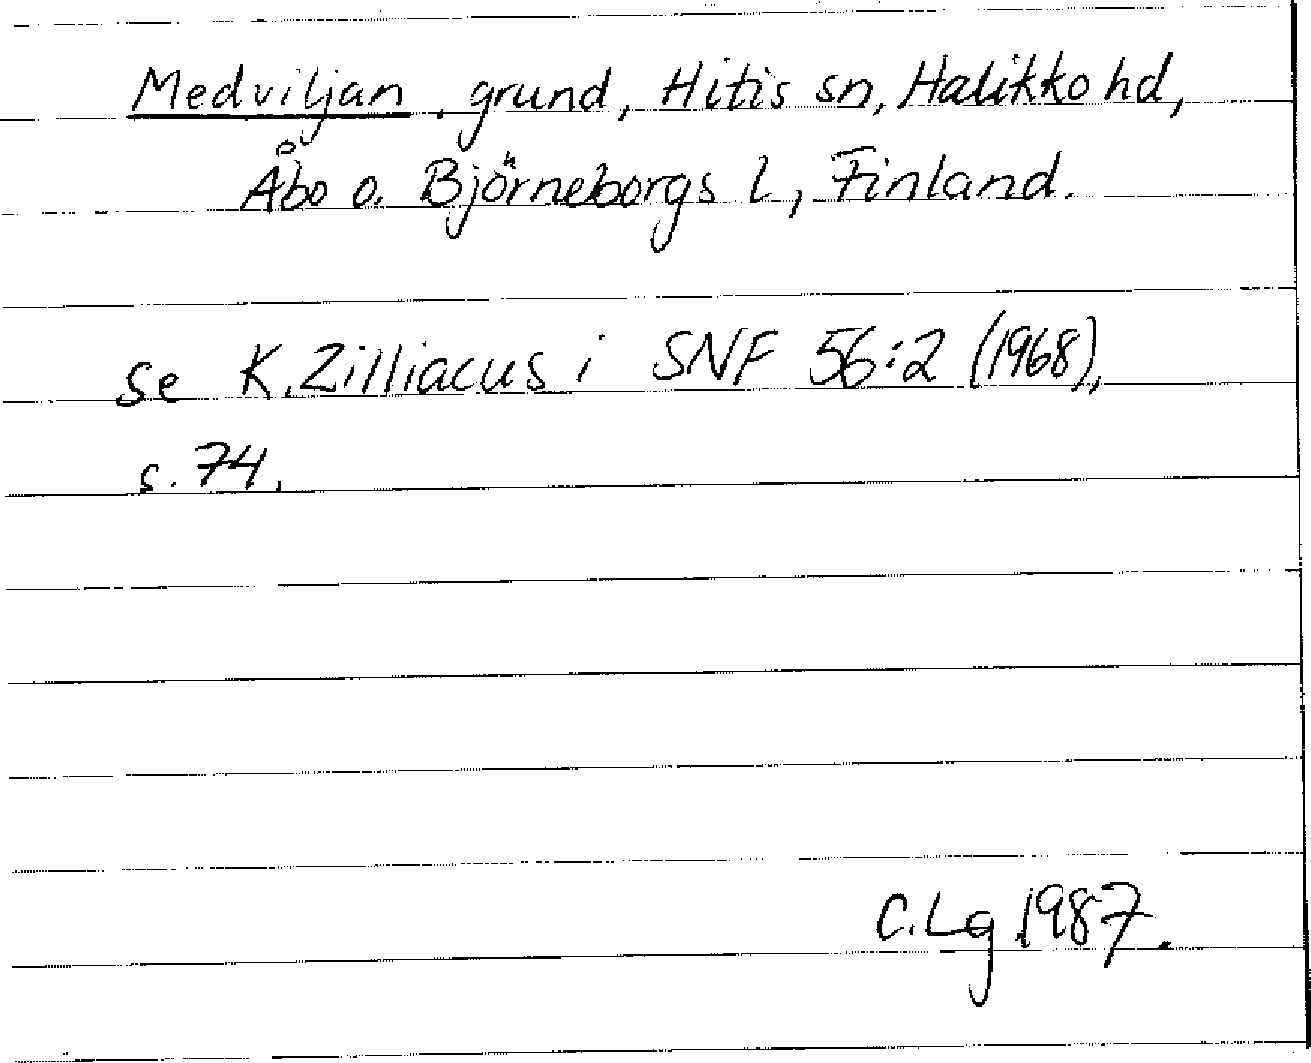 Medviljan, grund, Hitis sn, Halikko hd,
Åbo o. Björneborgs l, Finland.
se K. Zilliacus i SNF 56:2 (1968),
s. 74.
C. Lg 1987.